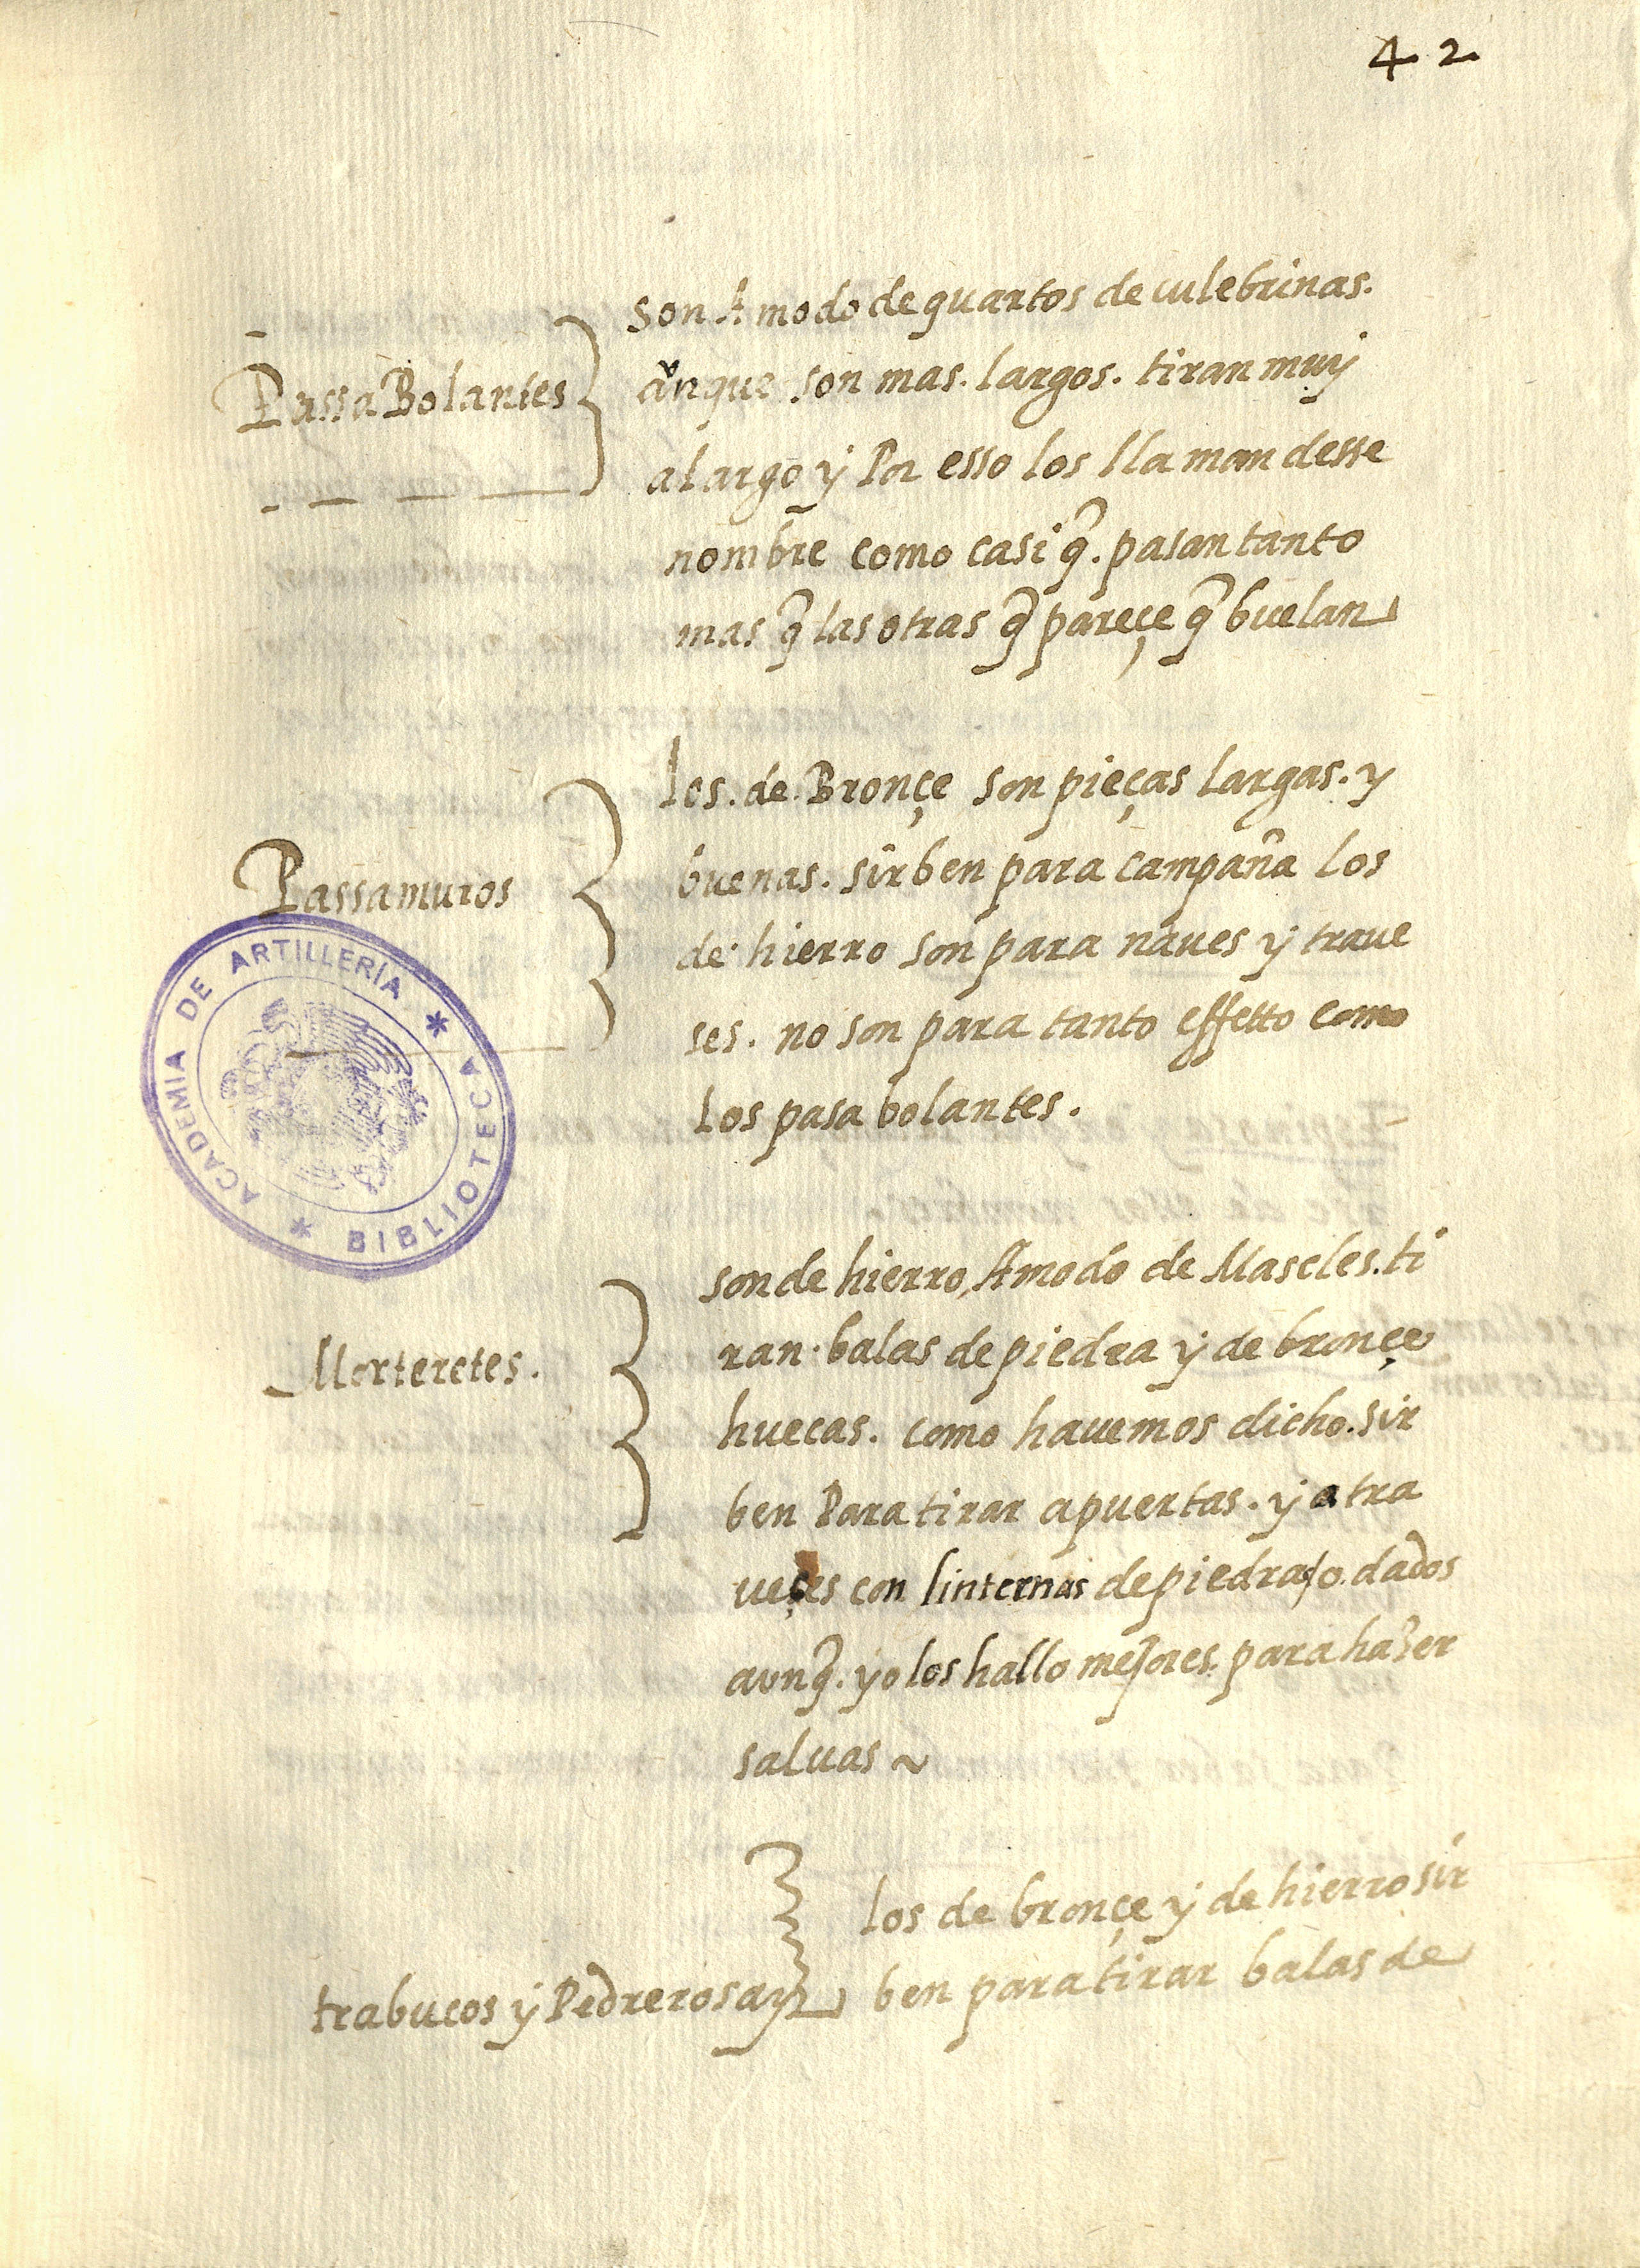 42
Passa Bolantes
son A modo de quartos de culebrinas.
aunque son mas. largos. tiran muy
a largo y Por esso los llaman desse
nombre como casi q̃. pasan tanto
mas q̃ las otras q̃ pareçe q̃ buelan
Passamuros
los. de. Bronçe son pieças largas. y
buenas. sirben para campaña los
de hierro son para naues y traue
ses. no son para tanto effetto como
los pasa bolantes.
ACADEMIA DE ARTILLERÍA * BIBLIOTECA *
Morteretes.
son de hierro, A modo de Mascles. ti
ran. balas de piedra y de bronçe
huecas. como hauemos dicho. sir
ben Para tirar a puertas. y a tra
veçes con linternas de piedra / o. dados
avnq̃. yo los hallo mejores. para hazer
saluas ~
trabucos y Pedreros ay
los de bronçe y de hierro sir
ben para tirar balas de